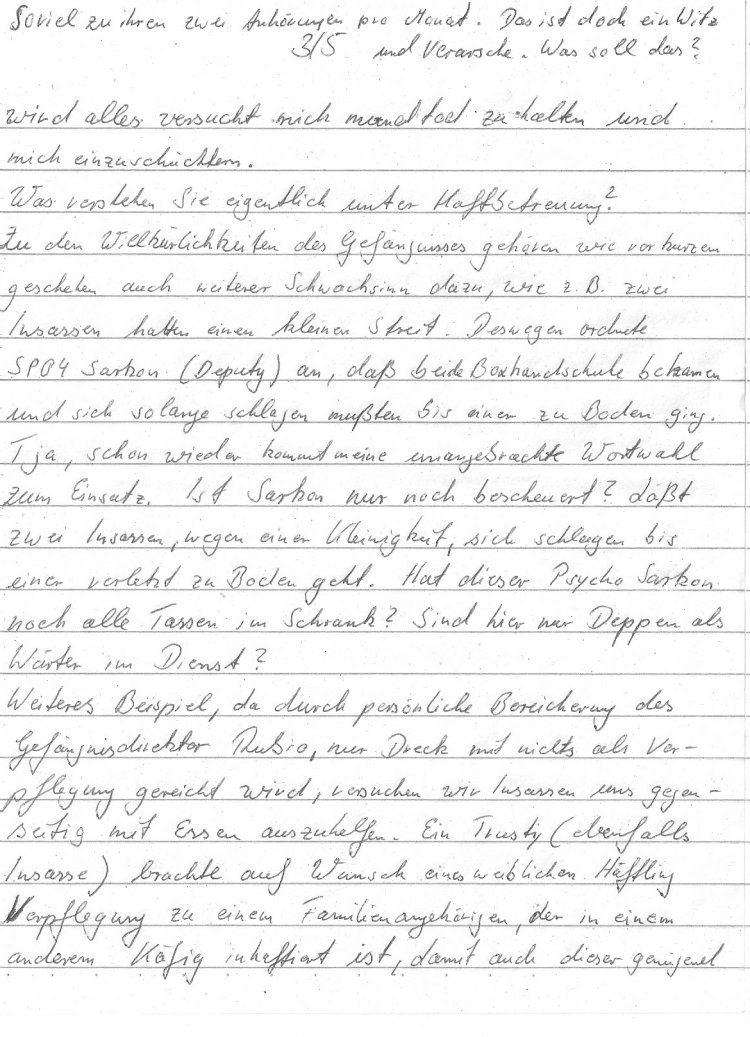 Soviel zu ihren zwei Anhörungen pro Monat. Das ist doch ein Witz
3/5 und Verarsche. Was soll das?
wird alles versucht mich mundtod zu halten und
mich einzuschüchtern.
Was verstehen Sie eigentlich unter Haftbetreuung?
Zu den Willkürlichkeiten des Gefängnisses gehören wie vor kurzem
geschehen auch weiterer Schwachsinn dazu, wie z.B. zwei
Insassen hatten einen kleinen Streit. Deswegen ordnete
SPO4 Sarkon (Deputy) an, daß beide Boxhandschuhe bekamen
und sich solange schlagen mußten bis einer zu Boden ging.
Tja, schon wieder kommt meine unangebrachte Wortwahl
zum Einsatz. Ist Sarkon nur noch bescheuert? Läßt
zwei Insassen, wegen einer Kleinigkeit, sich schlagen bis
einer verletzt zu Boden geht. Hat dieser Psycho Sarkon
noch alle Tassen im Schrank? Sind hier nur Deppen als
Wärter im Dienst?
Weiteres Beispiel, da durch persönliche Bereicherung des
Gefängnisdirektor Rubio, nur Dreck mit nichts als Ver-
pflegung gereicht wird, versuchen wir Insassen uns gegen-
seitig mit Essen auszuhelfen. Ein Trusty (ebenfalls
Insasse) brachte auf Wunsch eines weiblichen Häftling
Verpflegung zu einem Familienangehörigen, der in einem
anderem Käfig inhaftiert ist, damit auch dieser genügend